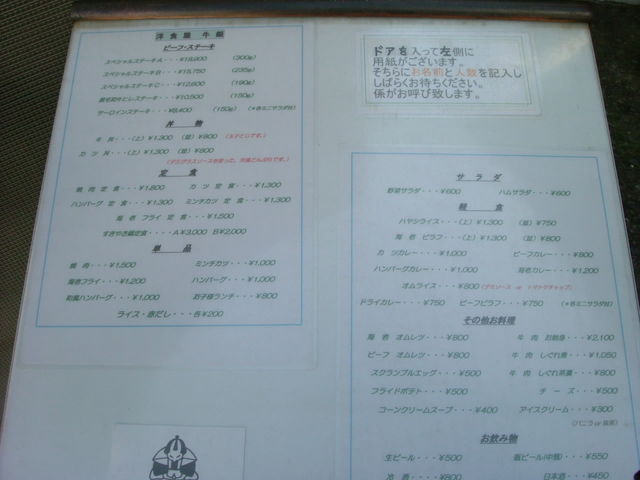 洋食屋 牛銀
ビーフ・ステーキ
スペシャルステーキA・・・¥18,900 (300g)
スペシャルステーキB・・・¥15,750 (235g)
スペシャルステーキC・・・¥12,600 (190g)
・・・¥10,500 (150g)
サーロインステーキ・・・¥8,400 (150g) (*各ミニサラダ付)
丼物
牛丼・・・(上)¥1,300 (並)¥800 (玉子とじです。)
カツ丼・・・(上)¥1,300 (並)¥800
(デミグラスソースを使った、洋風どんぶりです。)
定食
焼肉定食・・・¥1,800 カツ定食・・・¥1,300
ハンバーグ定食・・・¥1,300 ミンチカツ定食・・・¥1,300
海老フライ定食・・・¥1,500
すきやき鍋定食・・・・A¥3,000 B¥2,000
単品
焼肉・・・¥1,500 ミンチカツ・・・¥1,000
海老フライ・・・¥1,200 ハンバーグ・・・¥1,000
和風ハンバーグ・・・¥1,000 お子様ランチ・・・¥800
ライス・赤だし・・・各¥200
ドアを入って左側に
用紙がございます。
そちらにお名前と人数を記入し
しばらくお待ちください。
係がお呼び致します。
サラダ
野菜サラダ・・・¥600 ハムサラダ・・・¥800
軽食
ハヤシライス・・・(上)¥1,300 (並)¥750
海老ピラフ・・・(上)¥1,300 (並)¥800
カツカレー・・・¥1,000 ビーフカレー・・・¥800
ハンバーグカレー・・・¥1,000 海老カレー・・・¥1,200
オムライス・・・¥800(デミソース or トマトケチャップ)
ドライカレー・・・¥750 ビーフピラフ・・・¥750 (*各ミニサラダ付)
その他お料理
海老オムレツ・・・¥800 牛肉お刺身・・・¥2,100
ビーフオムレツ・・・¥800 牛肉しぐれ煮・・・¥1,050
スクランブルエッグ・・・¥500 牛肉しぐれ茶漬・・・¥800
フライドポテト・・・¥500 チーズ・・・¥500
コーンクリームスープ・・・¥400 アイスクリーム・・・¥300
(バニラ or 抹茶)
お飲み物
生ビール・・・¥500 瓶ビール(中瓶)・・・¥550
冷酒・・・¥800 日本酒・・・¥450